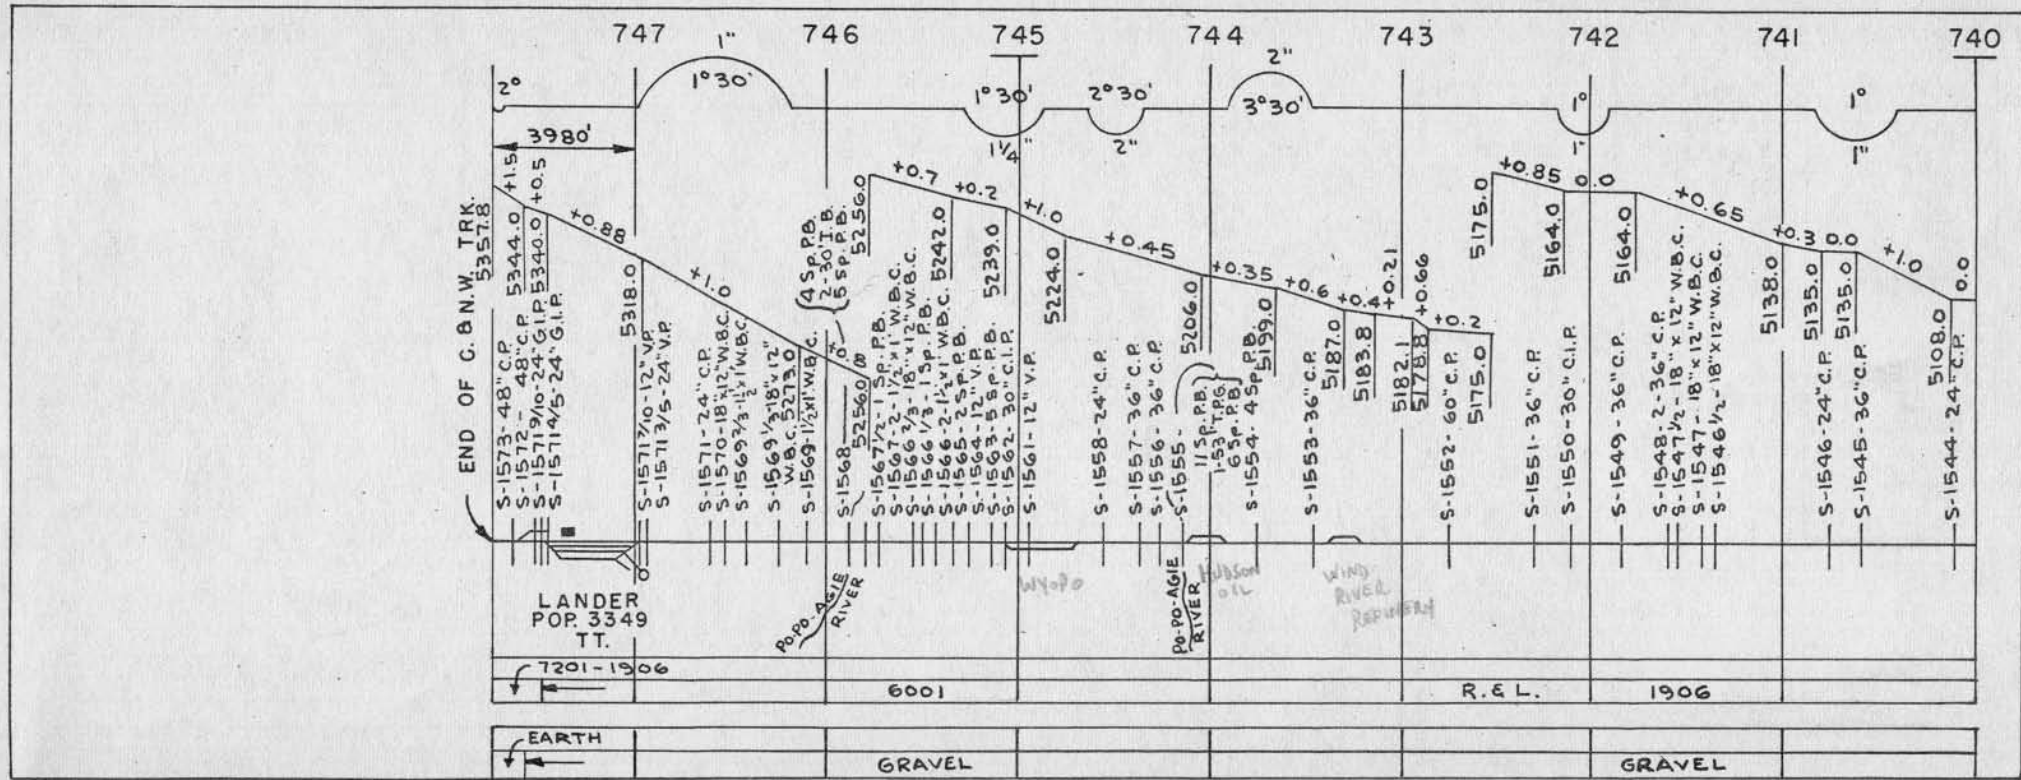 747 746 745 744 743 742 741 740
2° 1" 1°30' 1°30' 1¼" 2°30' 2" 2" 3°30' 1° 1" 1° 1"
3980'
+1.5 +0.5 +0.88 +1.0 +0.7 +0.2 +1.0 +0.45 +0.35 +0.6 +0.4 +0.21 +0.66 +0.2 +0.85 0.0 +0.65 +0.3 0.0 +1.0 0.0
END OF C.&N.W. TRK.
5357.8
5344.0
5340.0
5318.0
5273.0
5256.0
5256.0
5242.0
5239.0
5224.0
5206.0
5199.0
5187.0
5183.8
5182.1
5178.8
5175.0
5175.0
5164.0
5164.0
5138.0
5135.0
5135.0
5108.0
S-1573-48" C.P.
S-1572-48" C.P.
S-1571 9/10-24" G.I.P.
S-1571 4/5-24" G.I.P.
S-1571 7/10-12" V.P.
S-1571 3/5-24" V.P.
S-1571-24" C.P.
S-1570-18"x12" W.B.C.
S-1569 2/3-1½'x1' W.B.C.
S-1569 1/3-18"x12"
W.B.C.
S-1569-1½'x1' W.B.C.
4 Sp. P.B.
2-30' I.B.
5 Sp. P.B.
S-1568
S-1567½-1 Sp. P.B.
S-1567-2-1½'x1' W.B.C.
S-1566 2/3-18"x12" W.B.C.
S-1566 1/3-1 Sp. P.B.
S-1566-2-1½'x1' W.B.C.
S-1565-2 Sp. P.B.
S-1564-12" V.P.
S-1563-5 Sp. P.B.
S-1562-30" C.I.P.
S-1561-12" V.P.
S-1558-24" C.P.
S-1557-36" C.P.
S-1556-36" C.P.
S-1555-
11 Sp. P.B.
1-53' T.P.G.
6 Sp. P.B.
S-1554-4 Sp. P.B.
S-1553-36" C.P.
S-1552-60" C.P.
S-1551-36" C.P.
S-1550-30" C.I.P.
S-1549-36" C.P.
S-1548-2-36" C.P.
S-1547½-18"x12" W.B.C.
S-1547-18"x12" W.B.C.
S-1546½-18"x12" W.B.C.
S-1546-24" C.P.
S-1545-36" C.P.
S-1544-24" C.P.
LANDER
POP. 3349
TT.
PO-PO-AGIE
RIVER
WYOPO
PO-PO-AGIE
RIVER
HUDSON
OIL
WIND
RIVER
REFINERY
7201-1906
6001 R.&L. 1906
EARTH
GRAVEL GRAVEL